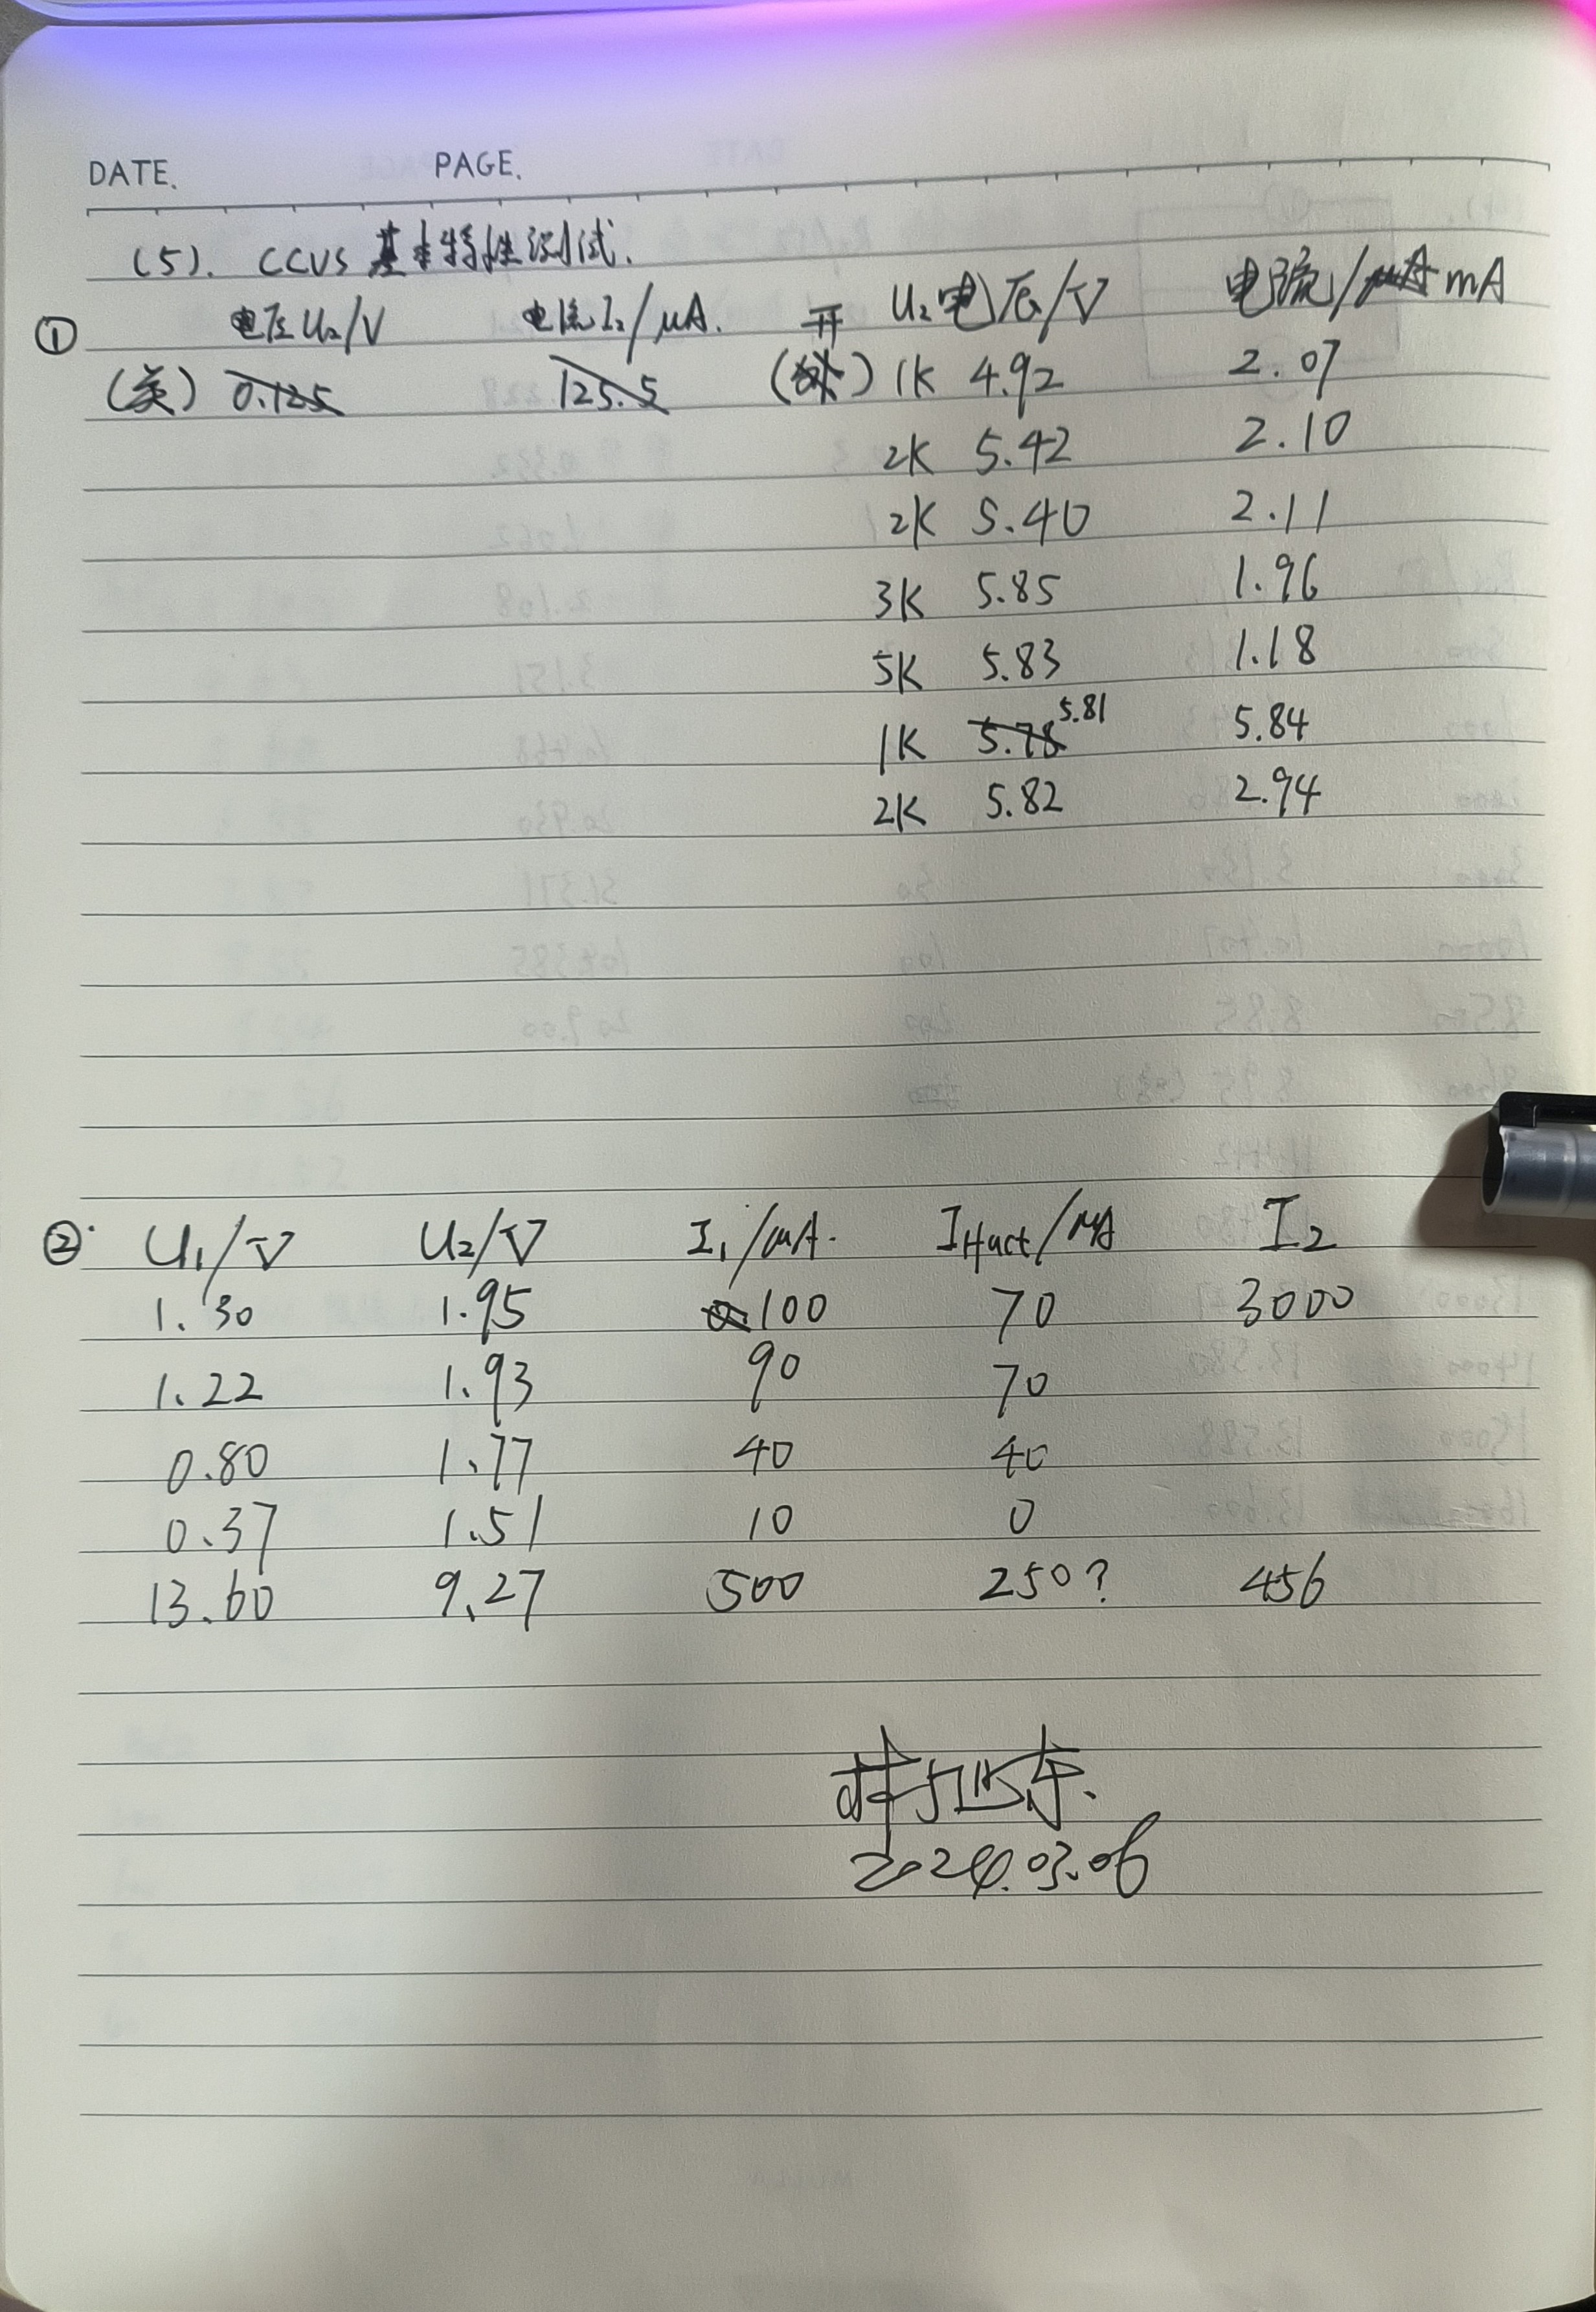 DATE. PAGE.
(5). CCVS 基本特性测试.
① 电压 U₂/V 电流 I₂/μA. 开 U₂ 电压/V 电流/μA mA
(关) 0.125 125.5 1K 4.92 2.07
2K 5.42 2.10
2K 5.40 2.11
3K 5.85 1.96
5K 5.83 1.18
1K 5.78 5.81 5.84
2K 5.82 2.94
② U₁/V U₂/V I₁/μA. /μA I₂
1.30 1.95 100 70 3000
1.22 1.93 90 70
0.80 1.77 40 40
0.37 1.51 10 0
13.60 9.27 500 250? 456
2024.03.06